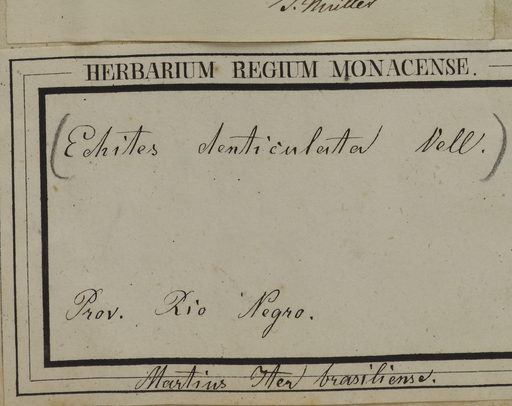 J. Müller
HERBARIUM REGIUM MONACENSE.
(Echites denticulata Vell.)
Prov. Rio Negro.
Martius Iter brasiliense.